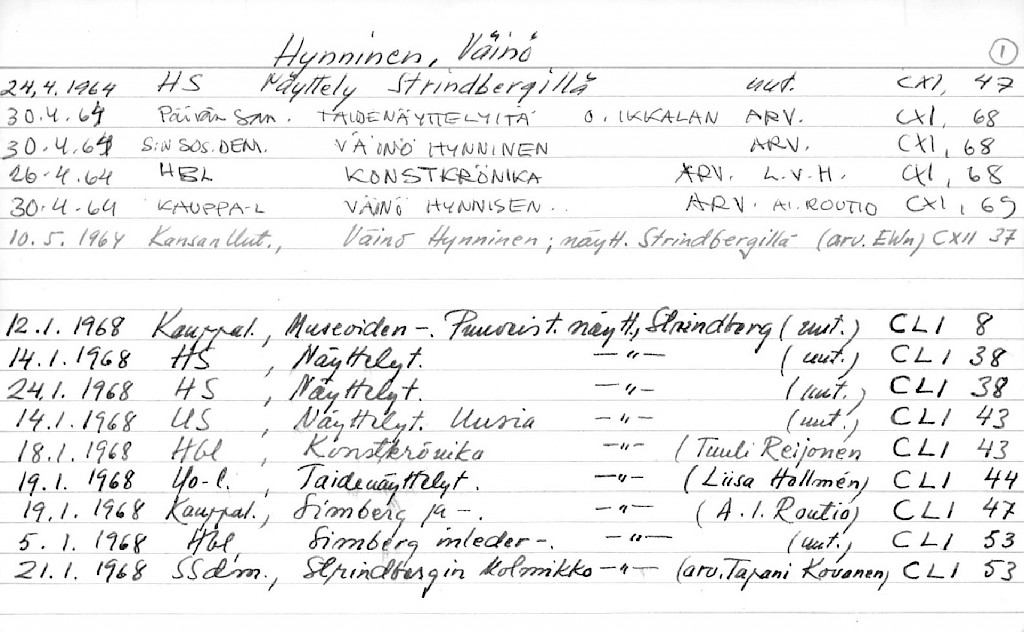 Hynninen, Väinö ①
24.4.1964 HS Näyttely Strindbergillä uut. CXI, 47
30.4.64 Päivän San. TAIDENÄYTTELYITÄ O. IKKALAN ARV. CXI, 68
30.4.64 S:N SOS.DEM. VÄINÖ HYNNINEN ARV. CXI, 68
26.4.64 HBL KONSTKRÖNIKA ARV. L.V.H. CXI, 68
30.4.64 KAUPPA-L VÄINÖ HYNNISEN.. ARV. A.I. ROUTIO CXI, 69
10.5.1964 Kansan Uut., Väinö Hynninen; näytt. Strindbergillä (arv. EWn) CXII 37
12.1.1968 Kauppal., Museoiden -. Puuveist. näytt., Strindberg (uut.) CLI 8
14.1.1968 HS, Näyttelyt. —"— (uut.) CLI 38
24.1.1968 HS, Näyttelyt. —"— (uut.) CLI 38
14.1.1968 US, Näyttelyt. Uusia —"— (uut.) CLI 43
18.1.1968 Hbl, Konstkrönika —"— (Tuuli Reijonen CLI 43
19.1.1968 Yo-l., Taidenäyttelyt. —"— (Liisa Hollmén) CLI 44
19.1.1968 Kauppal., Simberg ja -. —"— (A.I. Routio) CLI 47
5.1.1968 Hbl, Simberg inleder -. —"— (uut.) CLI 53
21.1.1968 SSdm., Strindbergin kolmikko —"— (arv. Tapani Kovanen) CLI 53